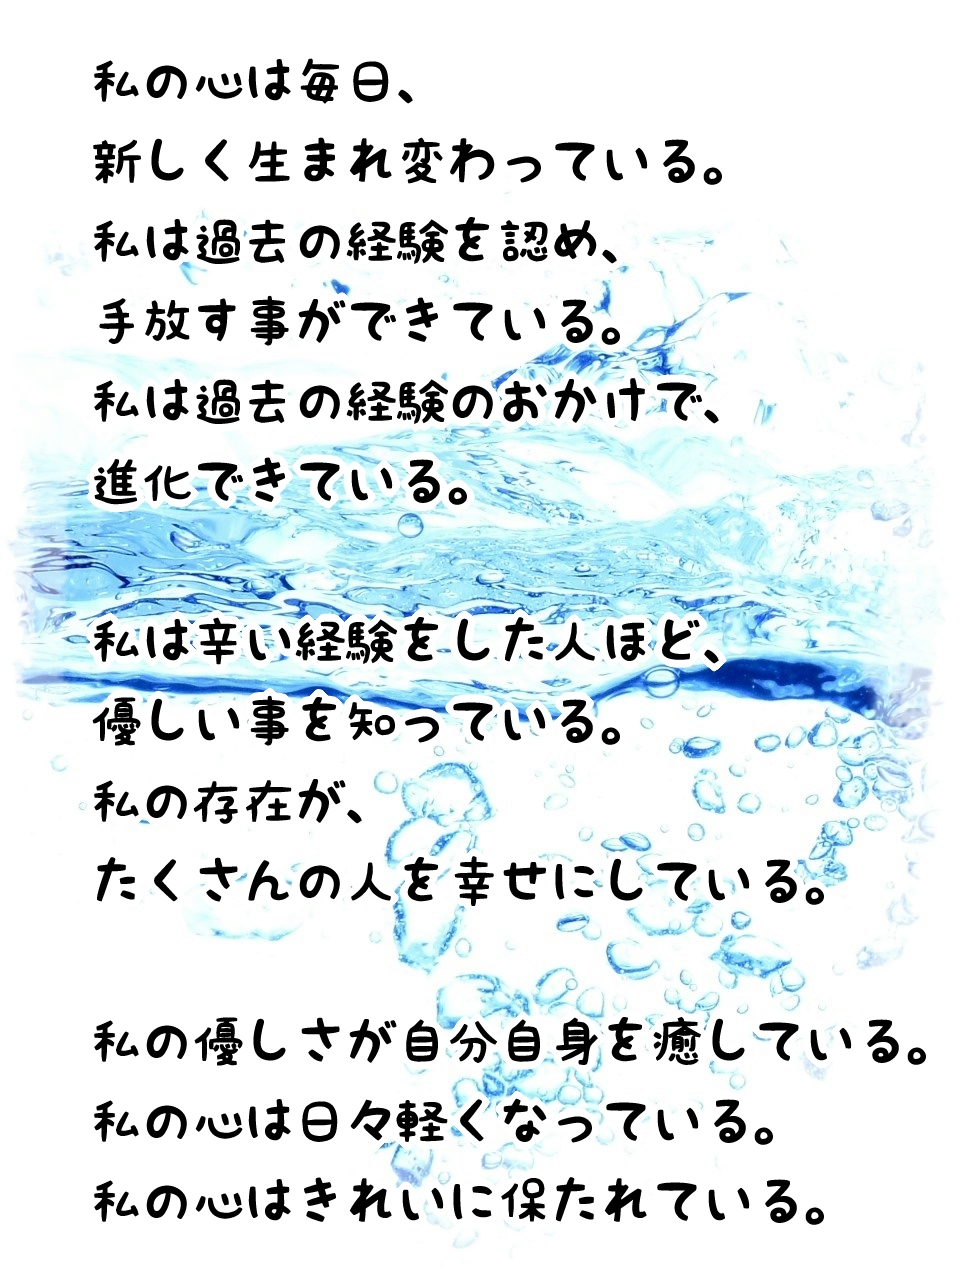 私の心は毎日、
新しく生まれ変わっている。
私は過去の経験を認め、
手放す事ができている。
私は過去の経験のおかけで、
進化できている。
私は辛い経験をした人ほど、
優しい事を知っている。
私の存在が、
たくさんの人を幸せにしている。
私の優しさが自分自身を癒している。
私の心は日々軽くなっている。
私の心はきれいに保たれている。